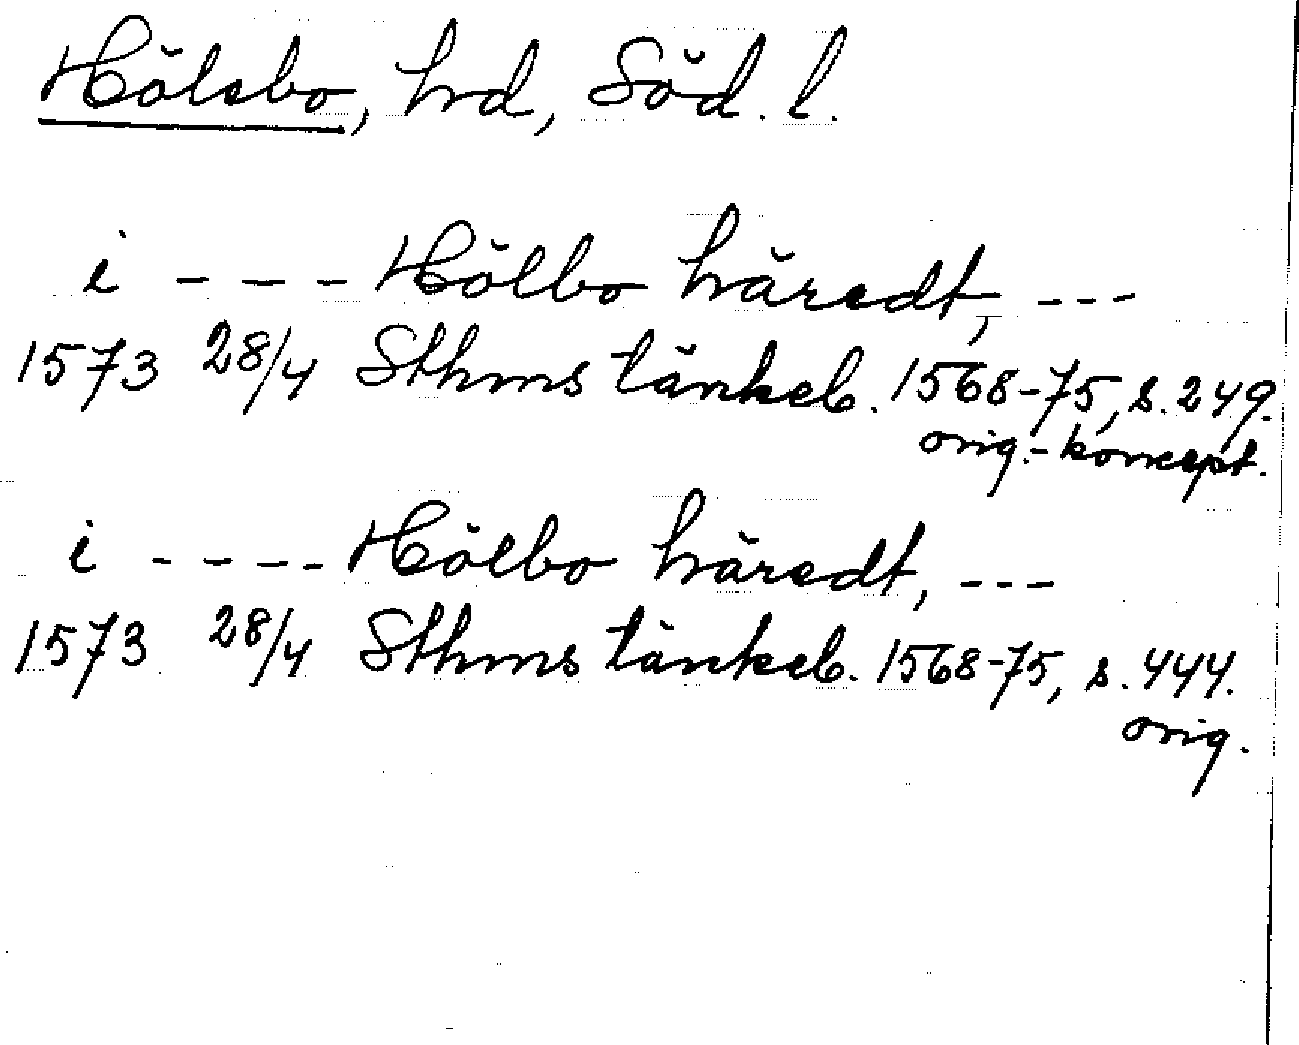 Hölebo, hrd, Söd. l.
i - - - Hölbo häredt, ---
1573 28/4 Sthms tänkeb. 1568-75, s. 249.
orig.-koncept.
i - - - - Hölbo häredt, ---
1573 28/4 Sthms tänkeb. 1568-75, s. 444.
orig.